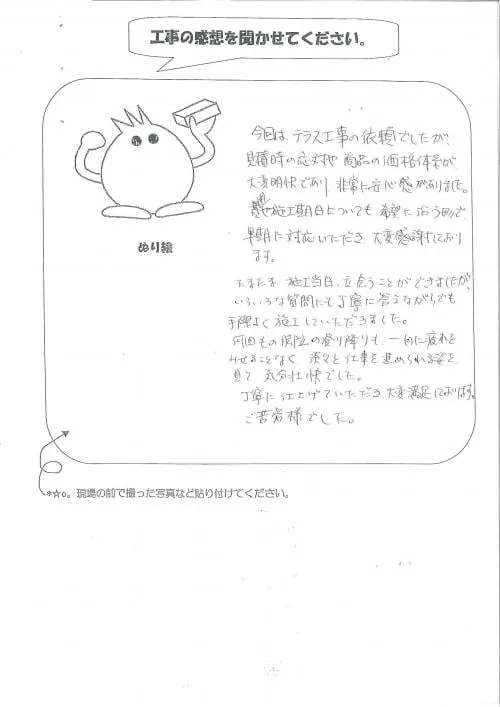 工事の感想を聞かせてください。
今回は テラス工事の依頼でしたが、
見積時の応対や 商品の価格体系が、
大変明快であり 非常に安心感がありました。
施工期日についても、希望に沿う形で、
早期に対応いただき 大変感謝しており
ます。
ぬり絵
たまたま 施工当日、立会うことができましたが、
いろいろな質問にも丁寧に答えながらでも
手際よく 施工していただきました。
何回もの 階段の登り降りも、一向に疲れを
みせることなく 淡々と仕事を進められる姿を
見て 気分壮快でした。
丁寧に仕上げていただき 大変満足しております。
ご苦労様でした。
*☆o。現場の前で撮った写真など貼り付けてください。